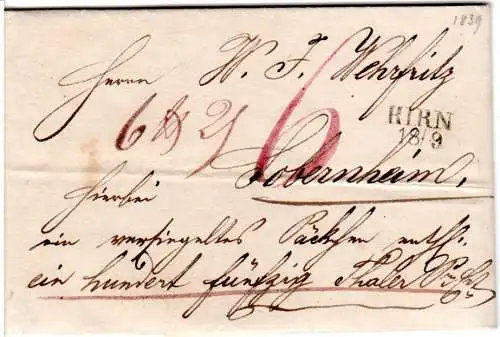 1839
Herrn W. F. Wehrfritz
KIRN
18/9
6 6
Sobernheim,
Hierbei
ein versiegeltes Päckchen enth:
ein hundert fünfzig Thaler